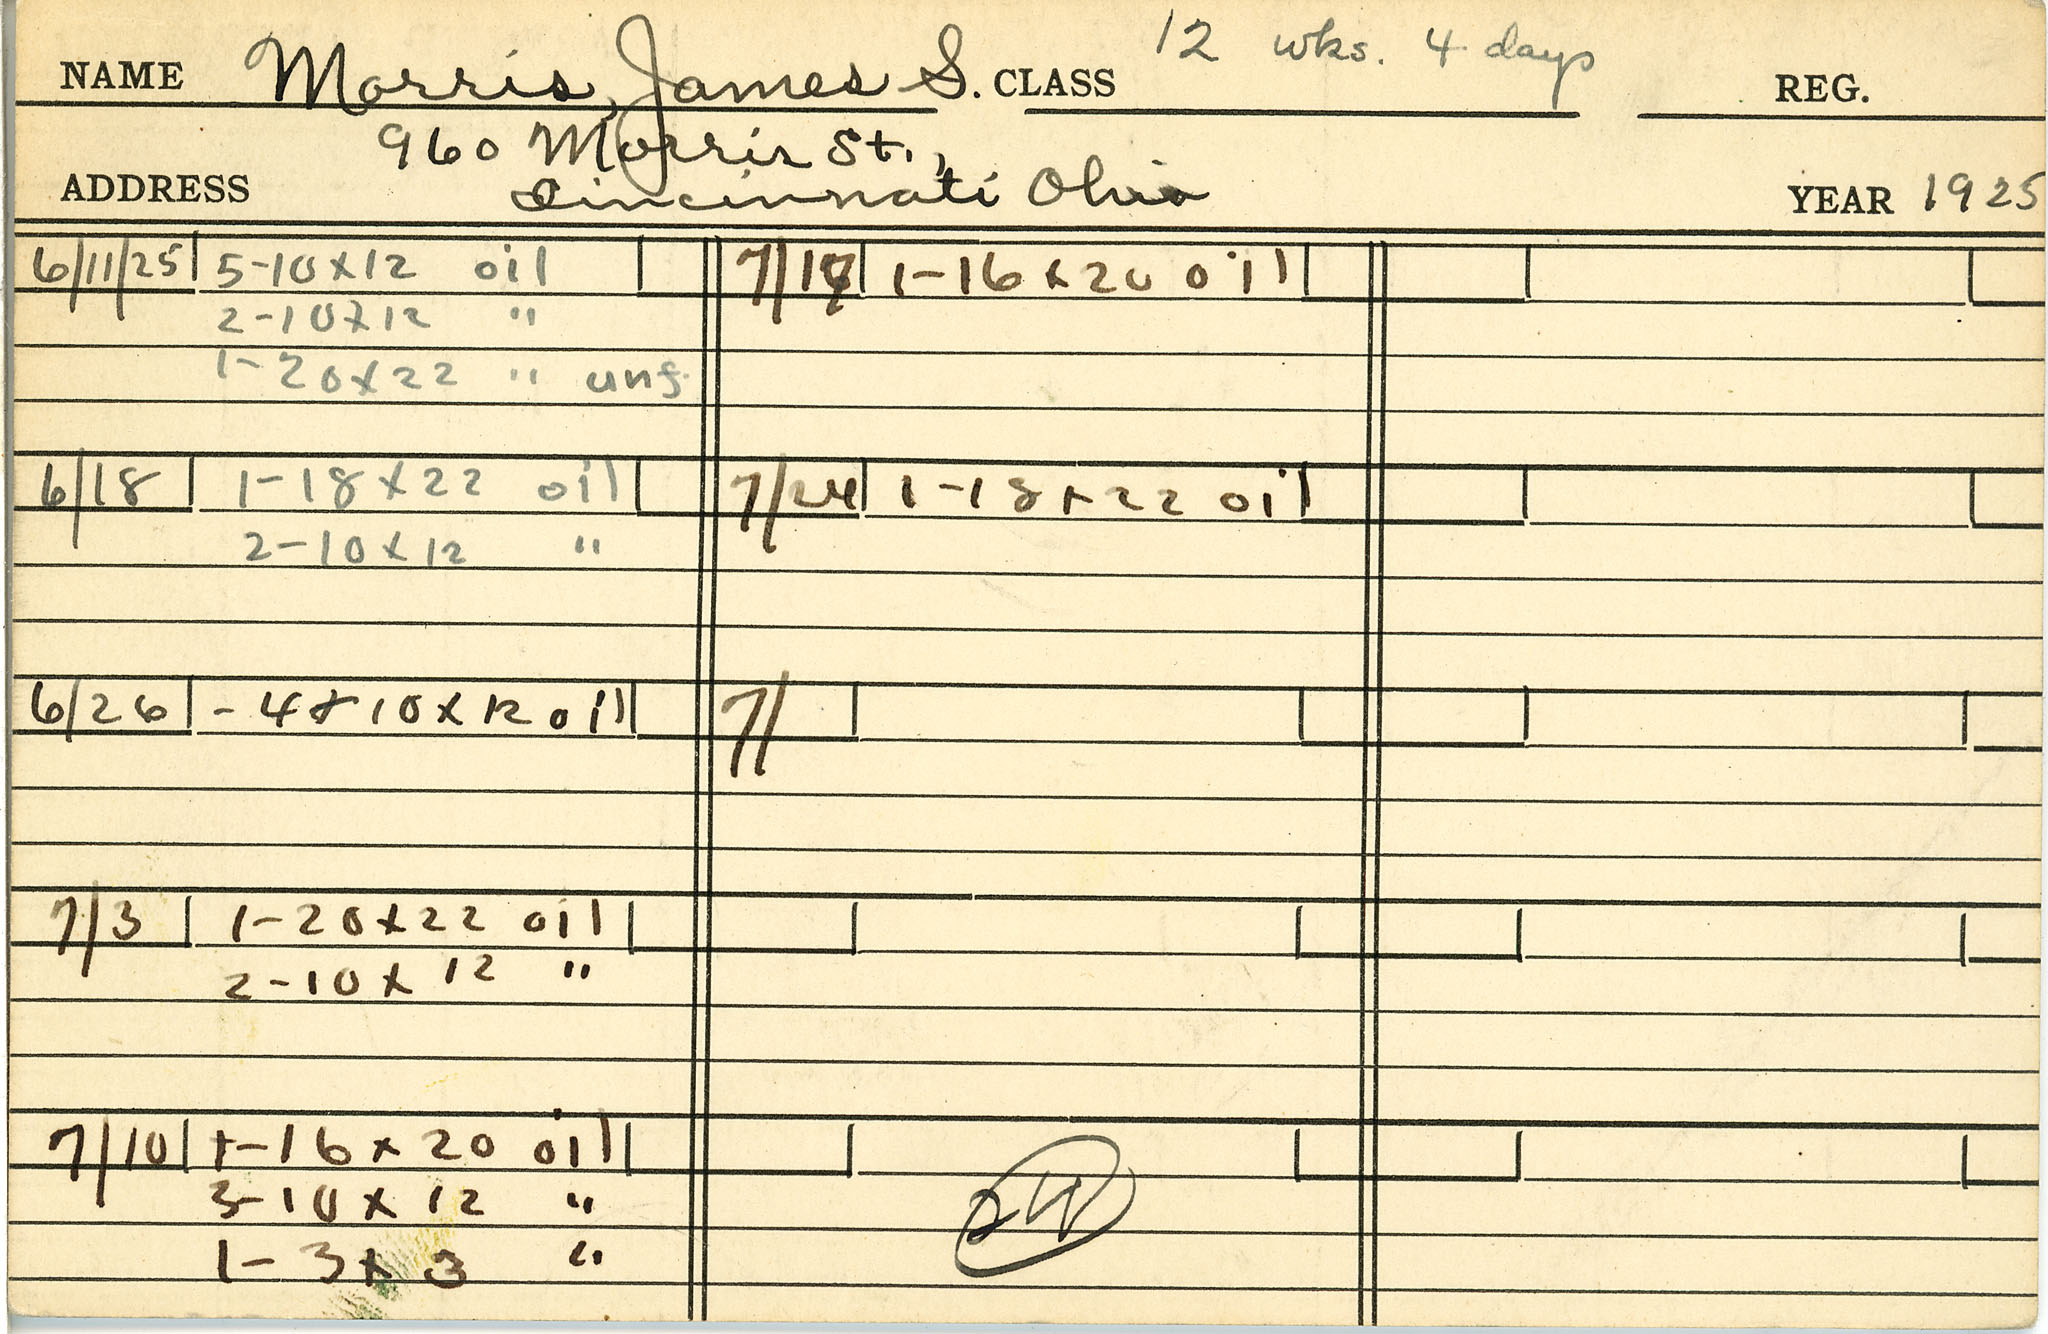 NAME Morris, James S. CLASS 12 wks. 4 days REG.
960 Morris St.,
ADDRESS Cincinnati Ohio YEAR 1925
6/11/25 5-10x12 oil
2-10x12 "
1-20x22 " unf.
6/18 1-18x22 oil
2-10x12 "
6/26 - 4 10x12 oil
7/3 1-20x22 oil
2-10x12 "
7/10 1-16x20 oil
3-10x12 "
1-3x3 "
7/17 1-16x20 oil
7/24 1-18x22 oil
7/